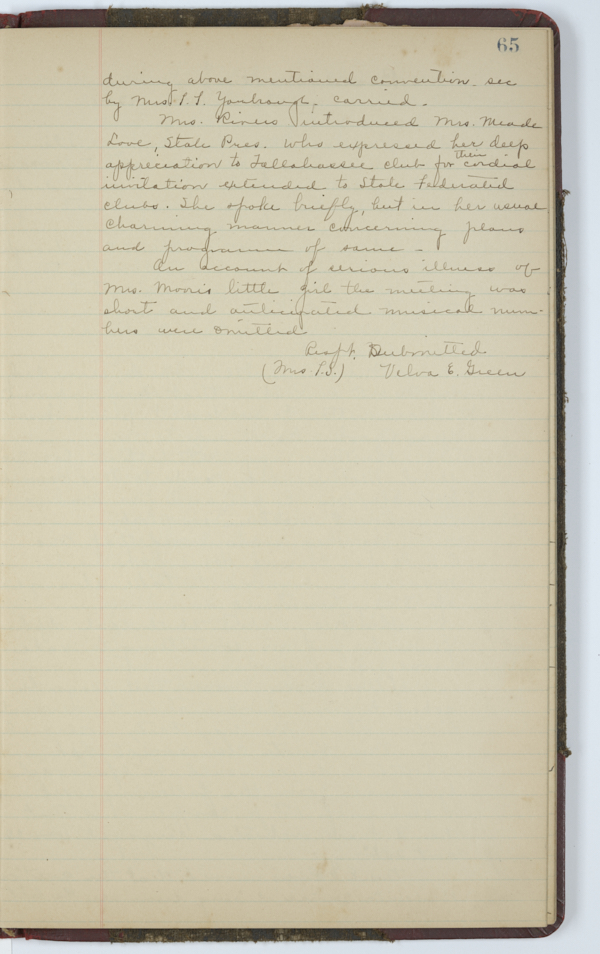 65
during above mentioned convention - sec
by Mrs. T. S. Yarbrough. carried -
Mrs. Rivers introduced Mrs. Meade
Love, State Pres. who expressed her deep
appreciation to Tallahassee club for their cordial
invitation extended to State Federated
clubs. She spoke briefly, but in her usual
charming manner concerning plans
and programme of same -
On account of serious illness of
Mrs. Moor's little girl the meeting was
short and anticipated musical num-
bers were omitted
Respt. Submitted
(Mrs. P.S.) Velva E. Green